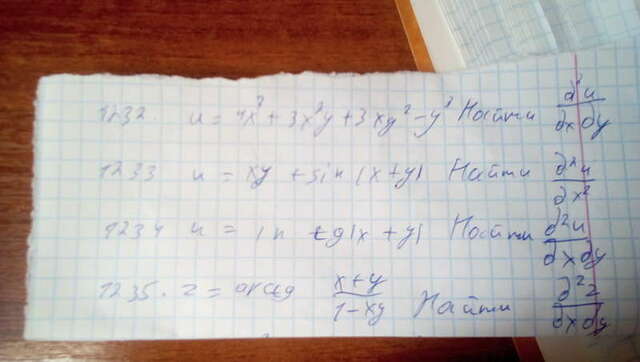 1232. u = 4x³ + 3x²y + 3xy² - y³ Найти ∂²u/∂x∂y
1233 u = xy + sin(x+y) Найти ∂²u/∂x²
1234 u = ln tg(x + y) Найти ∂²u/∂x∂y
1235. z = arctg (x+y)/(1-xy) Найти ∂²z/∂x∂y